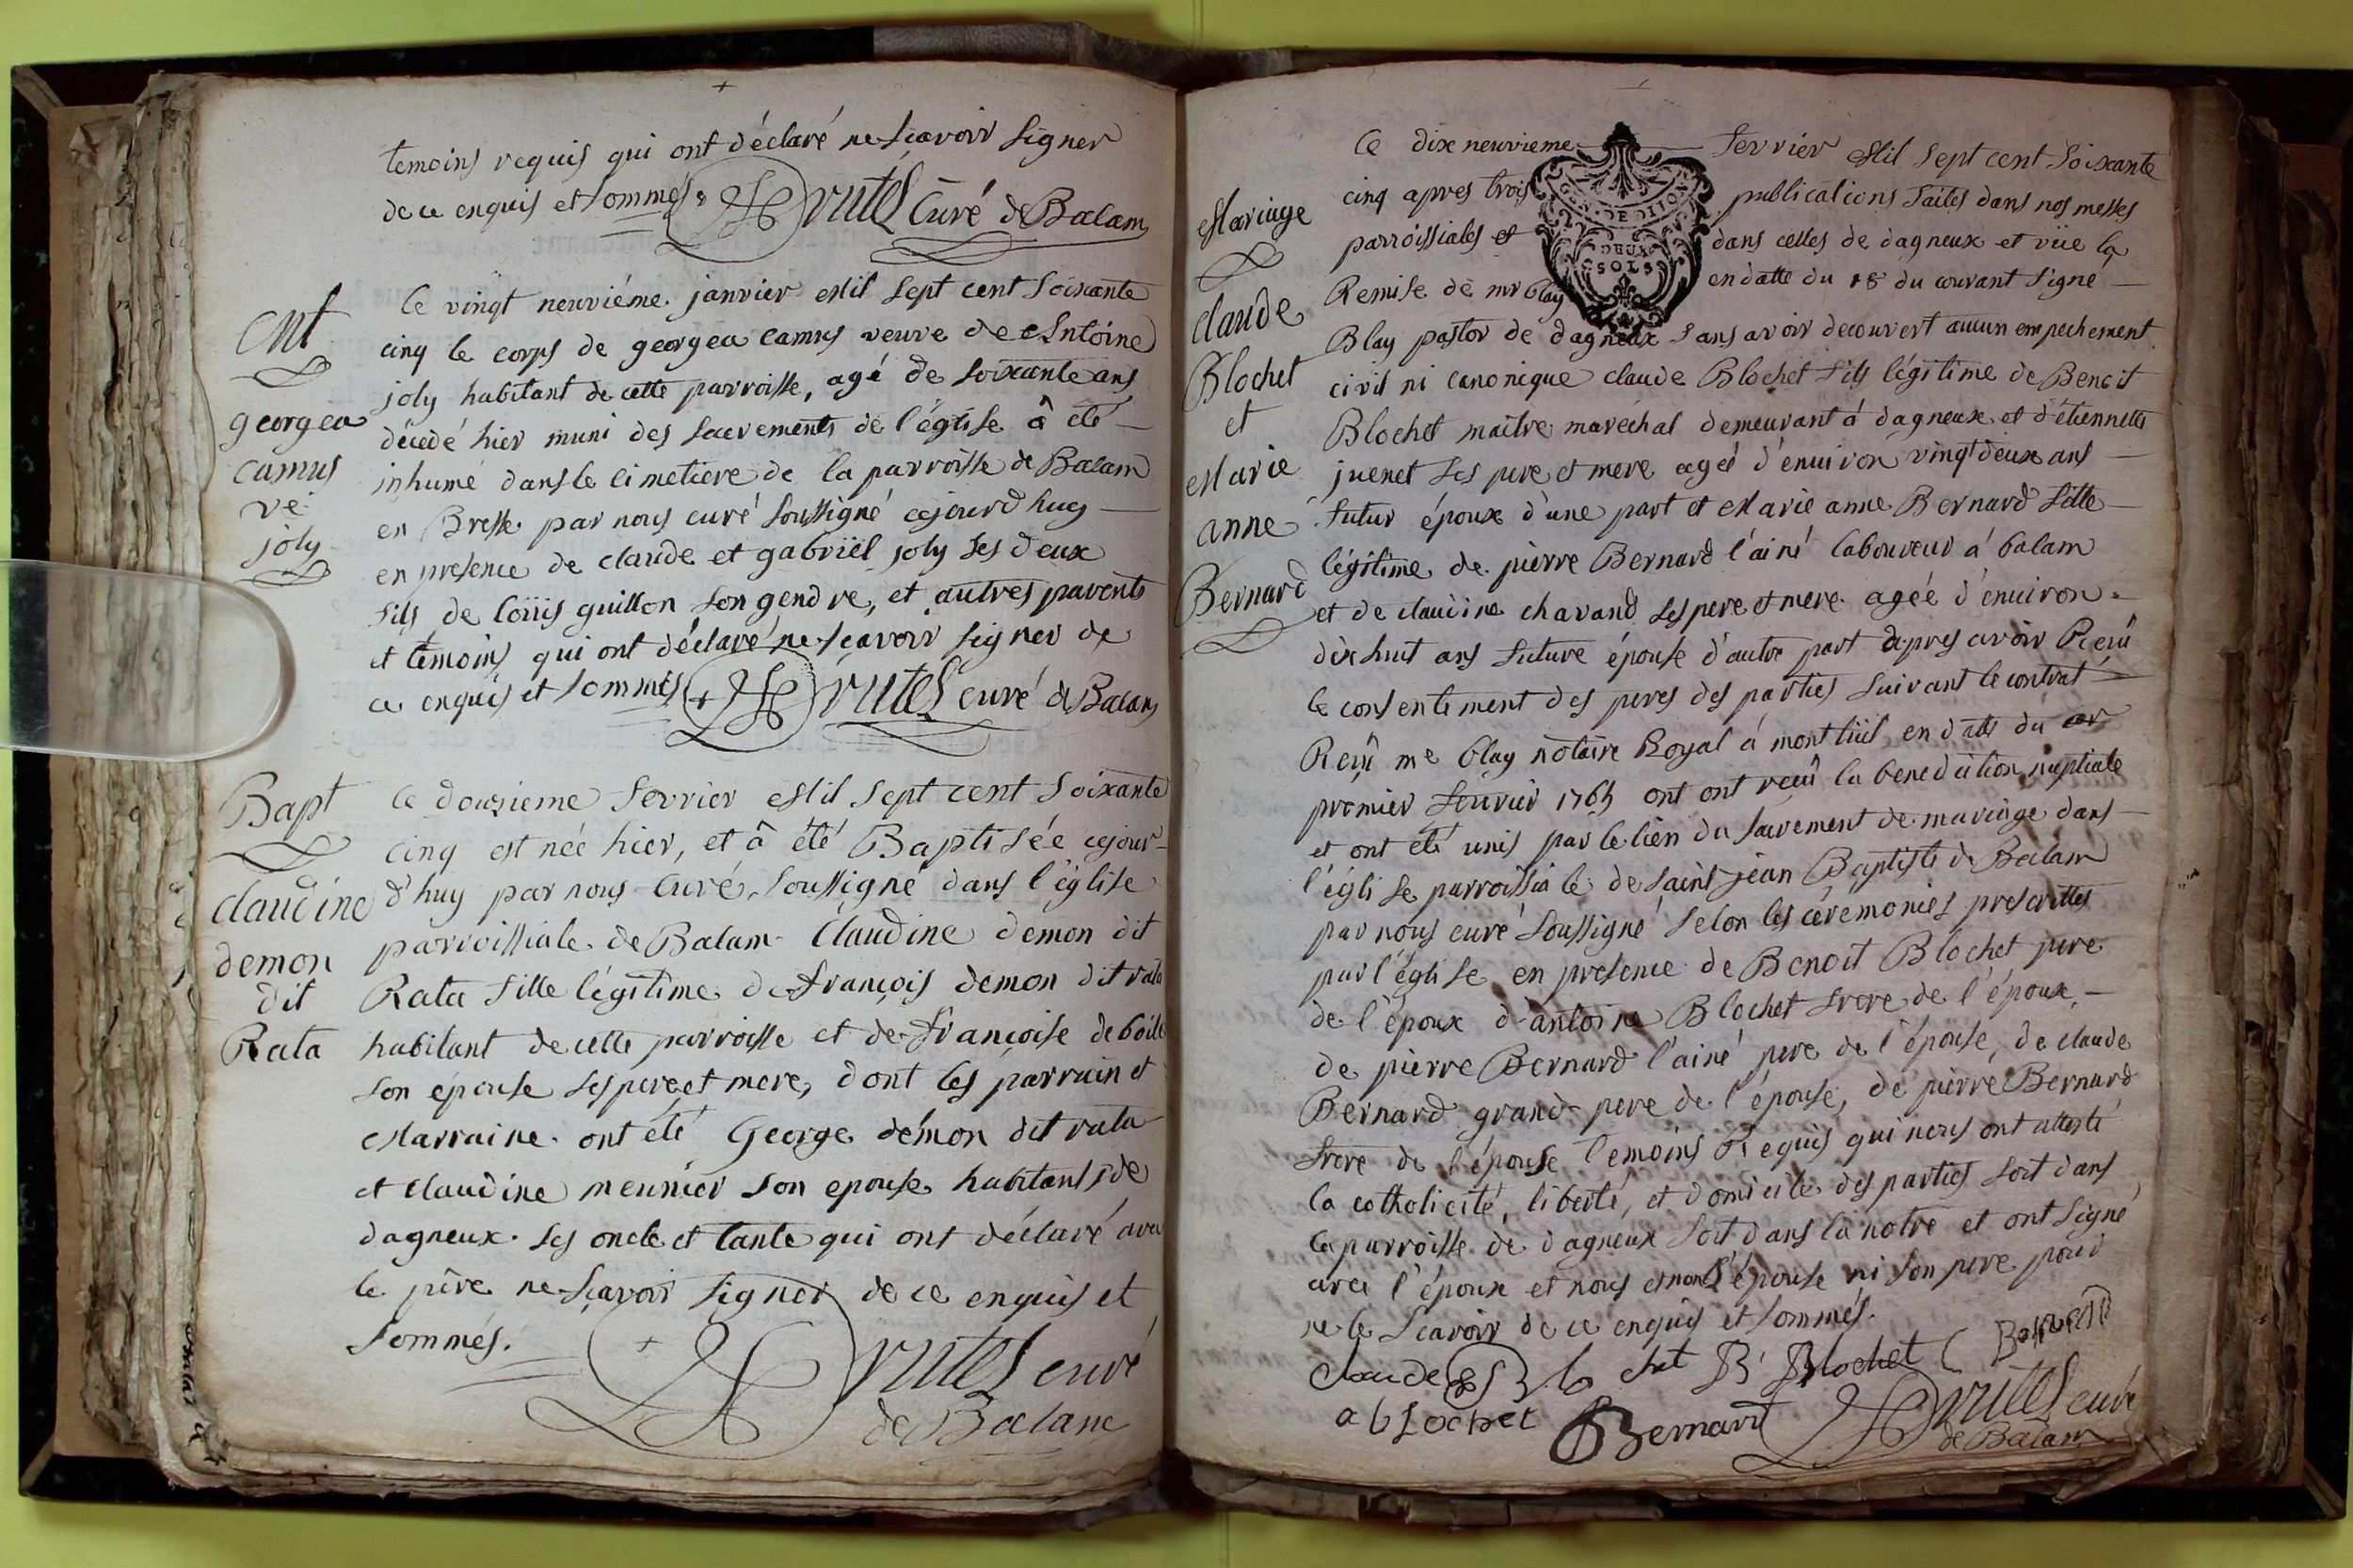 temoins requis qui ont déclaré ne sçavoir signer
de ce enquis et sommés. Drutel Curé de Balam
Ent
georgea
camus
ve.
joly
Le vingt neuviéme janvier Mil sept cent soixante
cinq le corps de georgea camus veuve de Antoine
joly habitant de cette parroisse, agé de soixante ans
décedé hier muni des sacrements de l'église â été
inhumé dans le cimetiere de la parroisse de Balam
en Bresse par nous curé soussigné cejourdhuy
en presence de claude et gabriël joly ses deux
fils de loüis guillon son gendre, et autres parents
et témoins qui ont déclaré ne sçavoir signer de
ce enquis et sommés Drutel curé de Balam
Bapt
claudine
demon
dit
Rata
Le douzieme fevrier Mil sept cent soixante
cinq est née hier, et â été Baptisée cejour-
d'huy par nous Curé soussigné dans l'église
parroissiale de Balam Claudine demon dit
Rata fille légitime de françois demon dit rata
habitant de cette parroisse et de françoise
son épouse ses pere et mere, dont les parrain et
Marraine ont été George démon dit rata
et claudine meunier son epouse habitants de
dagneux ses oncle et tante qui ont déclaré avec
le pére ne sçavoir signer de ce enquis et
sommés. Drutel curé
de Balam
Mariage
claude
Blochet
et
Marie
anne
Bernard
Ce dix neuvieme fevrier Mil sept cent soixante
cinq apres trois publications faites dans nos messes
parroissiales et dans celles de dagneux et vüe la
Remise de mr Blay en datte du 18 du courant signé
Blay pastor de dagneux sans avoir decouvert aucun empechement
civil ni canonique claude Blochet fils légitime de Benoit
Blochet maitre maréchal demeurant á dagneux et d'étiennette
juenet ses pere et mere agé d'environ vingt deux ans
futur époux d'une part et Marie anne Bernard fille
légitime de pierre Bernard l'ainé laboureur á balam
et de claudine chavand ses pere et mere agée d'environ
dix huit ans future épouse d'autre part apres avoir Reçû
le consentement des peres des parties suivant le contrat
Reçû me blay notaire Royal á montlüil en datte du
premier fevrier 1765 ont ont reçû la benediction nuptiale
et ont été unis par le lien du sacrement de mariage dans
l'église parroissiale de saint jean Baptiste de Balam
par nous curé soussigné selon les céremonies prescrittes
par l'église en presence de Benoit Blochet pere
de l'époux d'antoine Blochet frere de l'époux,
de pierre Bernard l'ainé pere de l'épouse, de claude
Bernard grand-pere de l'épouse, de pierre Bernard
frere de l'épouse temoins Requis qui nous ont attesté
la catholicité, liberté, et domicile des parties soit dans
la parroisse de dagneux soit dans la notre et ont signé
avec l'époux et nous et non l'épouse ni son pere pour
ne le sçavoir de ce enquis et sommés.
claude chet B Blochet C Bernard
a blochet P Bernard Drutel curé
de Balam
DEUX
SOLS